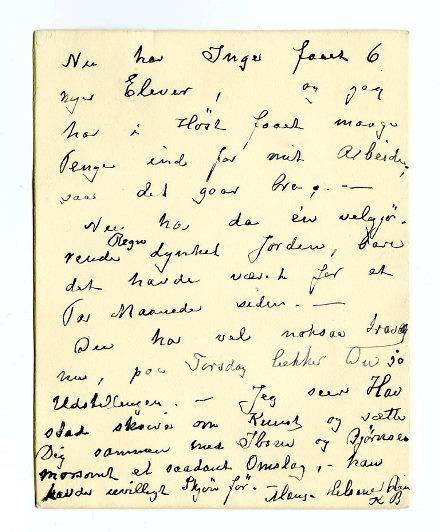 Nu har Inger faaet 6
nye Elever, og jeg
har i Høst faaet mange
Penge ind for mit Arbeide,
saa det gaar bra. —
Nu har da en velgjø-
rende Regn dynket Jorden, bare
det havde været for et
Par Maaneder siden. —
Du har vel noksaa travelt
nu, paa Torsdag lukker Du jo
Udstillingen. — Jeg seer Hav
stad skriver om Kunst og sætter
Dig sammen med Ibsen og Bjørnson
morsomt et saadant Omslag, — han
havde uvilligt Skjøn før. Hans
K B